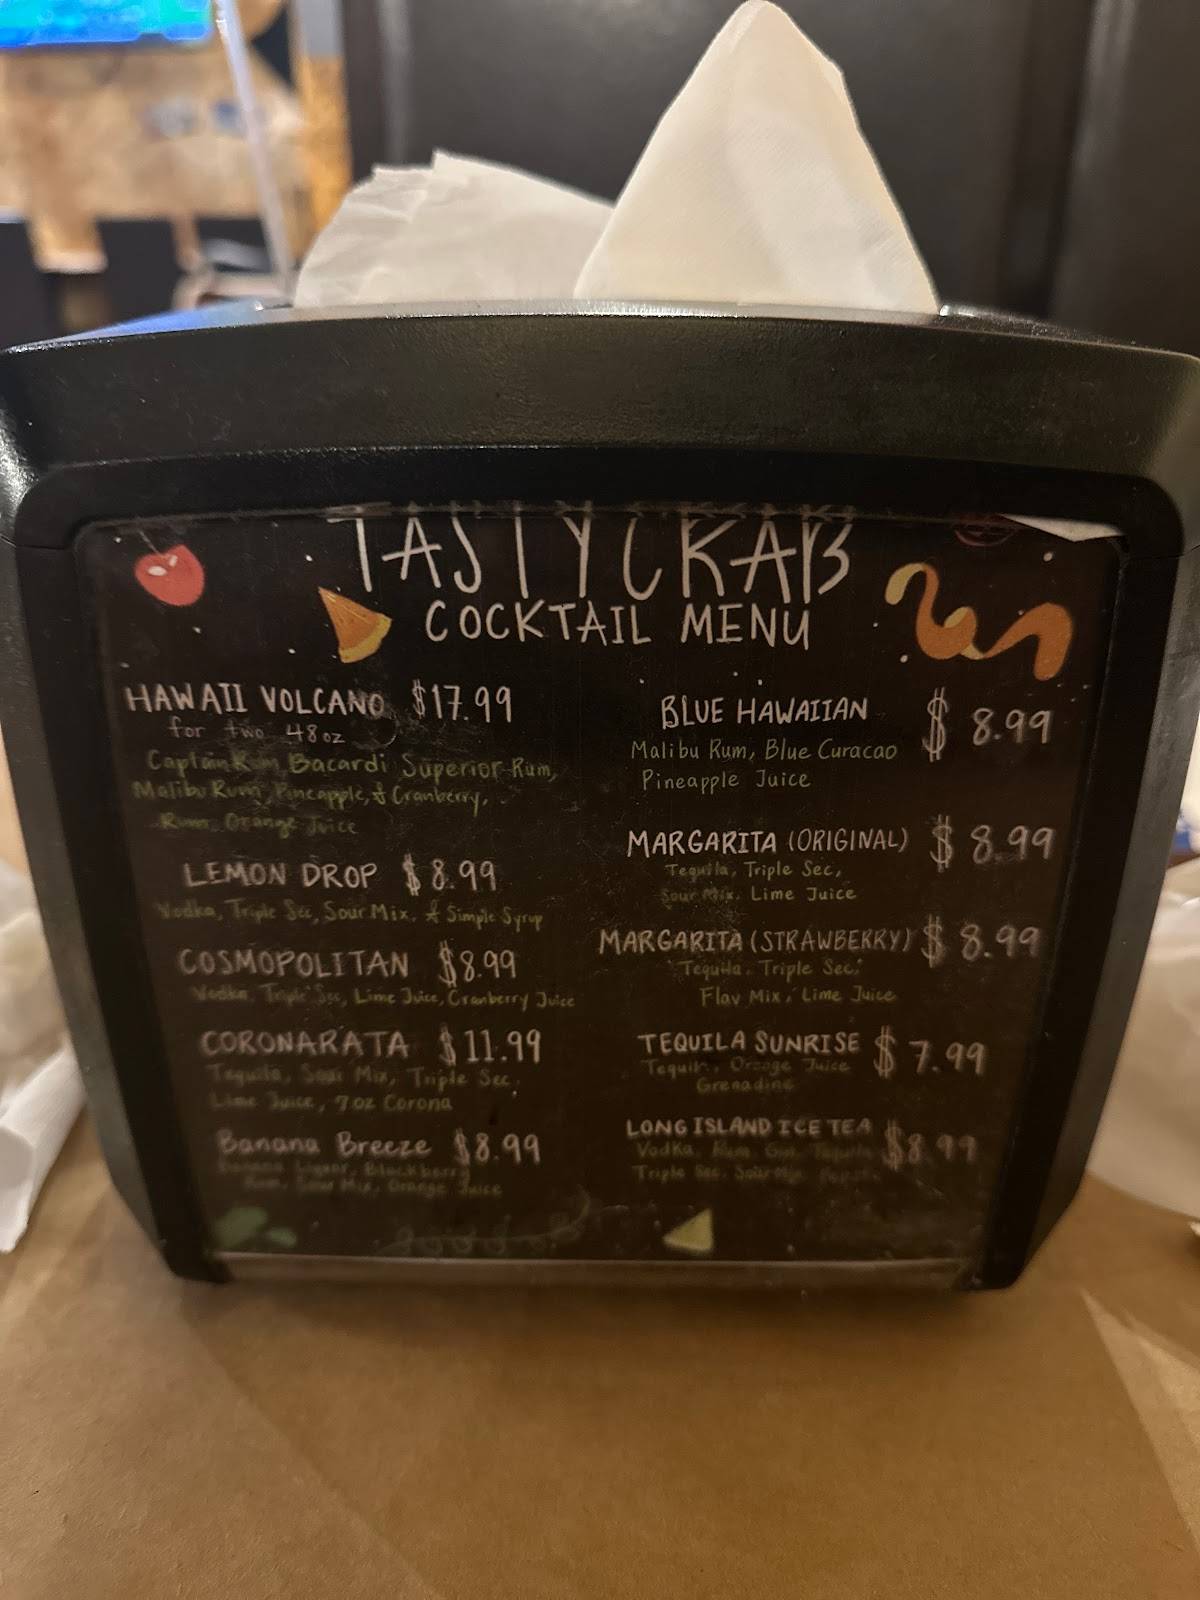 TASTYCRAB
COCKTAIL MENU
HAWAII VOLCANO $17.99
for two 48oz
Captain Rum, Bacardi Superior Rum,
Malibu Rum, Pineapple, & Cranberry,
Rum, Orange Juice
LEMON DROP $8.99
Vodka, Triple Sec, Sour Mix, & Simple Syrup
COSMOPOLITAN $8.99
Vodka, Triple Sec, Lime Juice, Cranberry Juice
CORONARATA $11.99
Tequila, Sour Mix, Triple Sec,
Lime Juice, 7oz Corona
Banana Breeze $8.99
Banana Liquor, Blackberry
Rum, Sour Mix, Orange Juice
BLUE HAWAIIAN $8.99
Malibu Rum, Blue Curacao
Pineapple Juice
MARGARITA (ORIGINAL) $8.99
Tequila, Triple Sec,
Sour Mix, Lime Juice
MARGARITA (STRAWBERRY) $8.99
Tequila, Triple Sec,
Flav Mix, Lime Juice
TEQUILA SUNRISE $7.99
Tequila, Orange Juice
Grenadine
LONG ISLAND ICE TEA $8.99
Vodka, Rum, Gin, Tequila
Triple Sec, Sour Mix